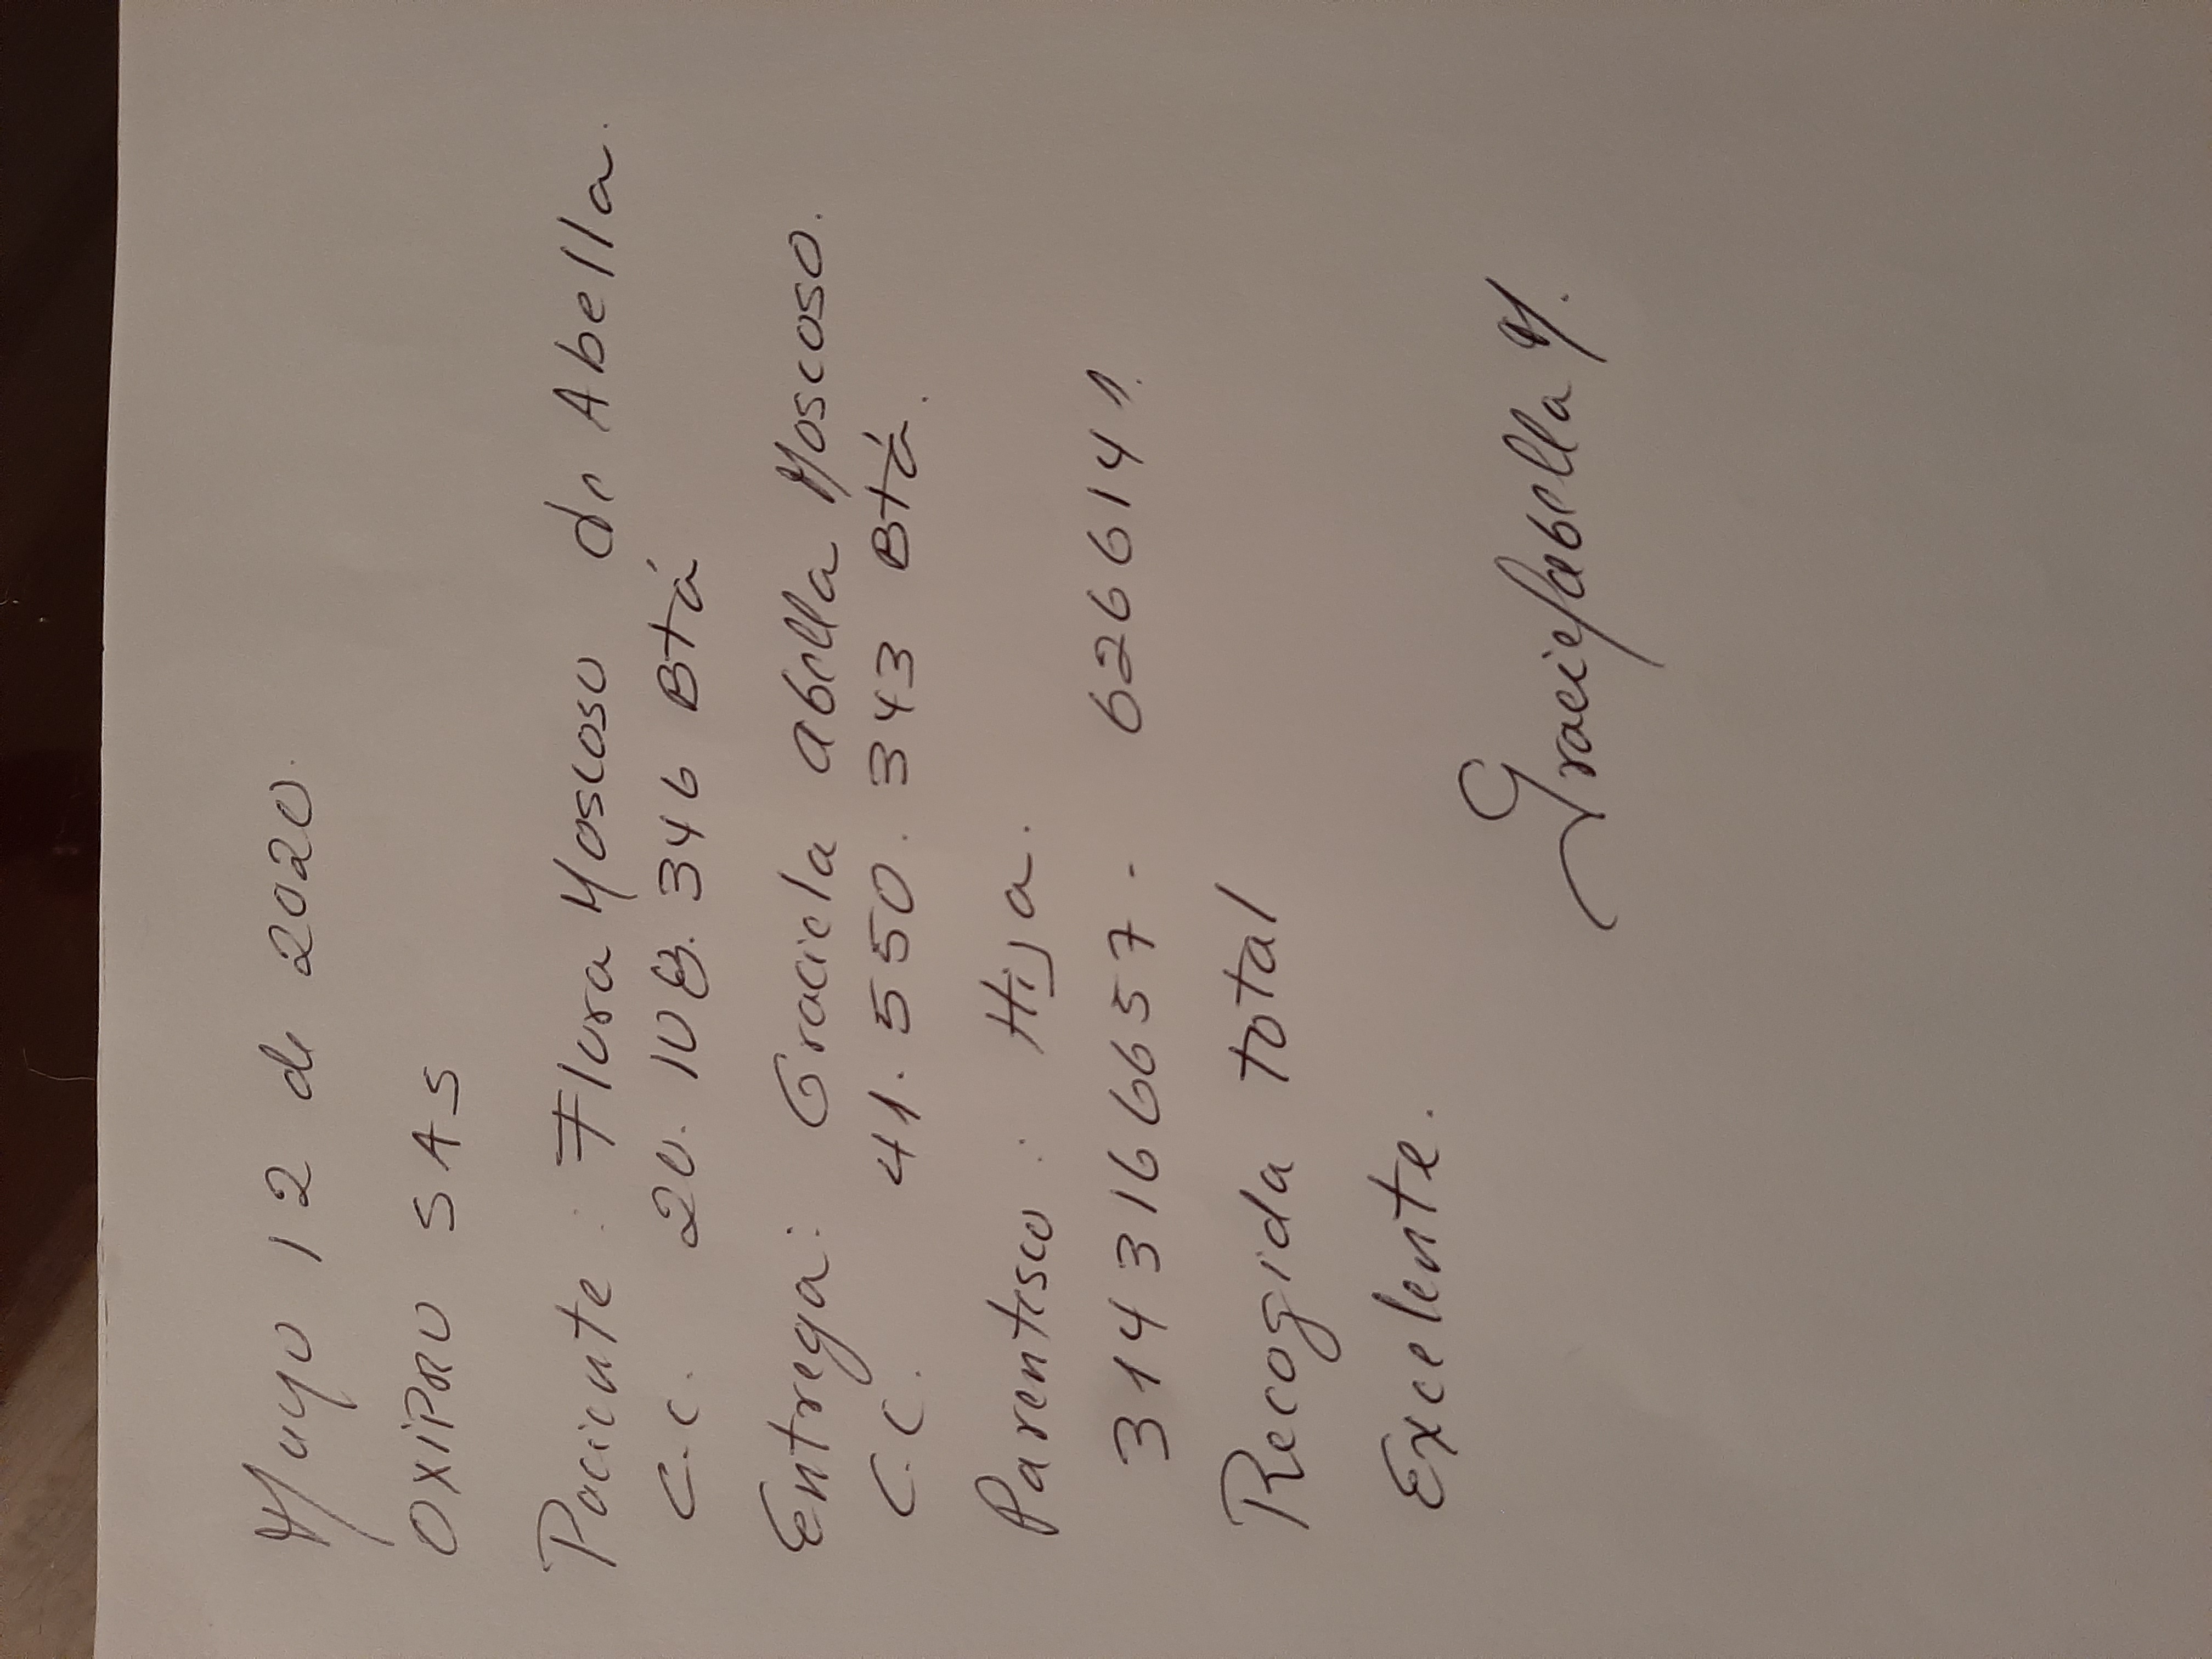 Mayo 12 de 2020.
OXIPRO SAS
Paciente: Flora Moscoso de Abella.
C.C. 20.108.346 Btá
Entrega: Graciela Abella Moscoso.
C.C. 41.550.343 Btá.
Parentesco: Hija.
3143166657- 6266141.
Recogida total
Excelente.
Graciela Abella M.